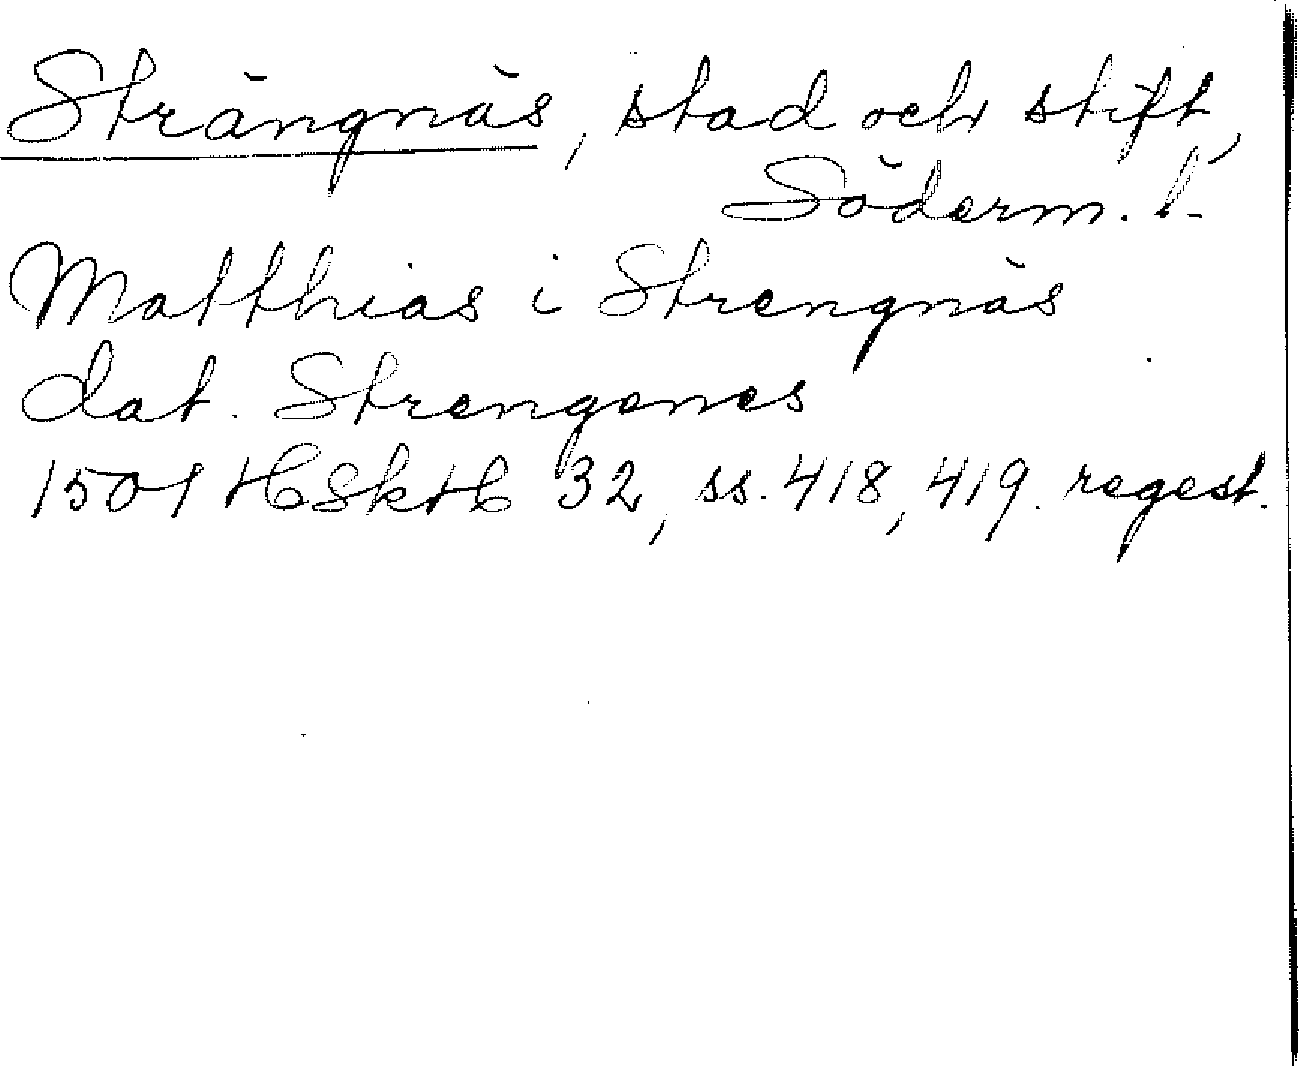 Strängnäs, stad och stift,
Söderm. l.
Matthias i Strengnäs
dat. Strengenes
1501 HSkH 32, ss. 418, 419. regest.